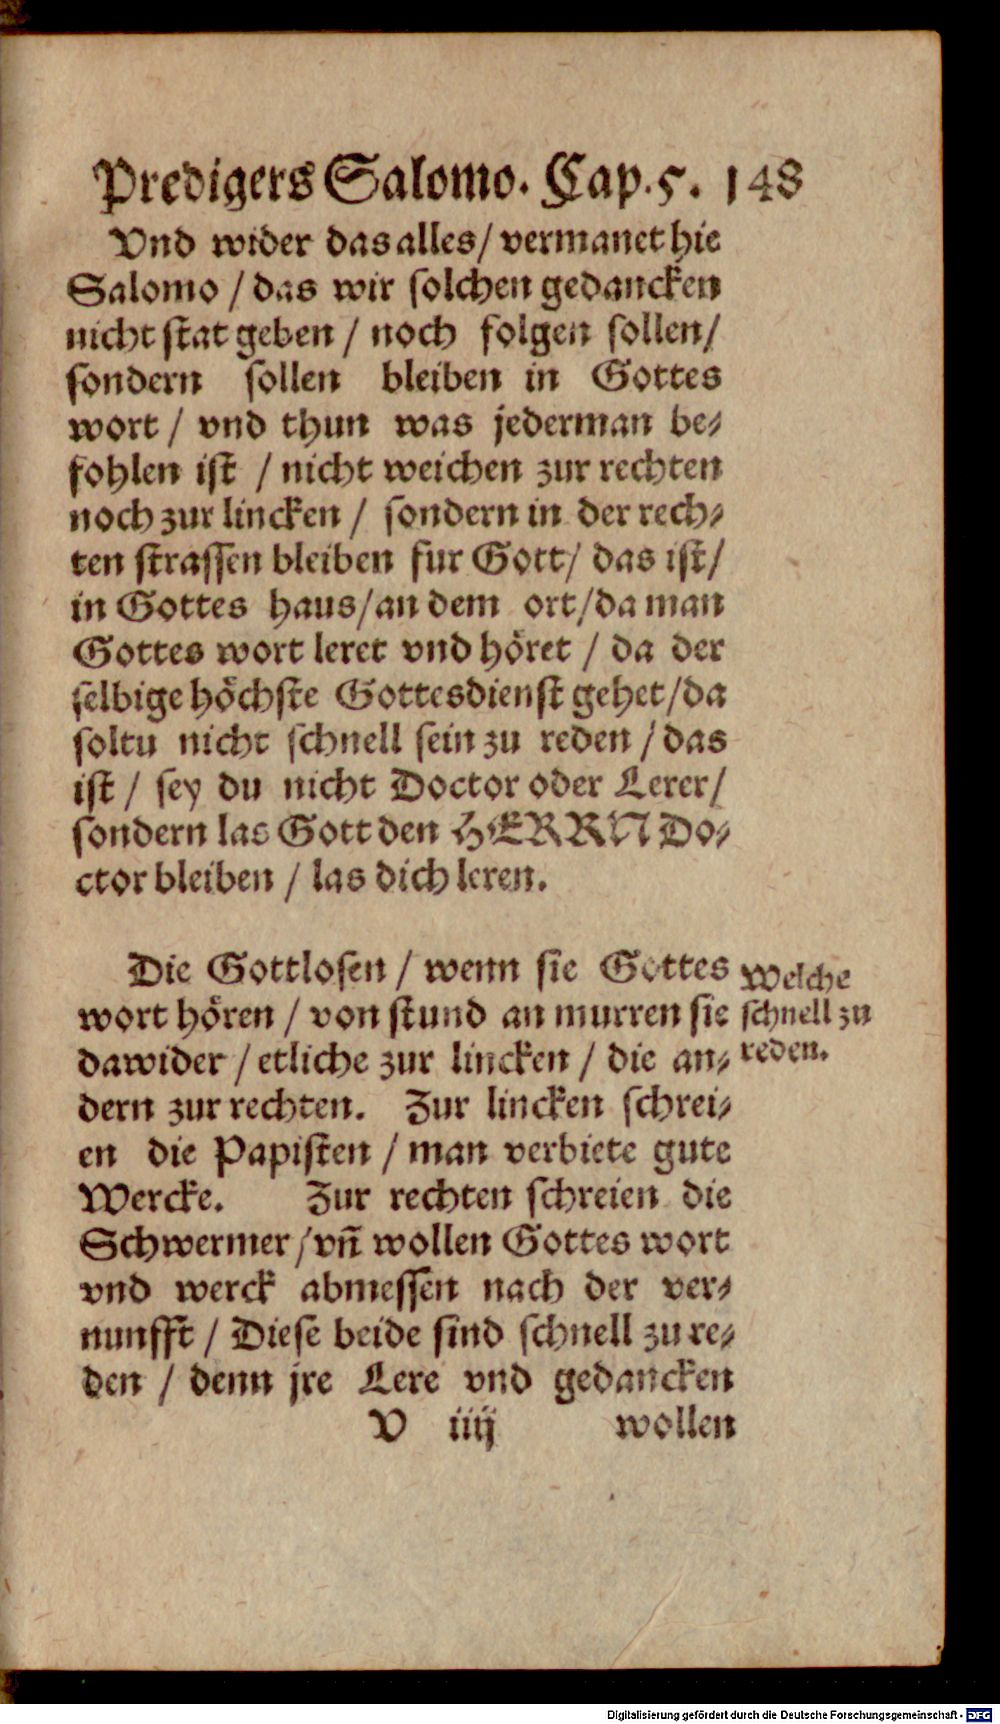 Predigers Salomo. Cap. 5. 148
Vnd wider das alles / vermanet hie
Salomo / das wir solchen gedancken
nicht stat geben / noch folgen sollen /
sondern sollen bleiben in Gottes
wort / vnd thun was jederman be-
fohlen ist / nicht weichen zur rechten
noch zur lincken / sondern in der rech-
ten strassen bleiben fur Gott / das ist /
in Gottes haus / an dem ort / da man
Gottes wort leret vnd höret / da der
selbige höchste Gottesdienst gehet / da
soltu nicht schnell sein zu reden / das
ist / sey du nicht Doctor oder Lerer /
sondern las Gott den HERRN Do-
ctor bleiben / las dich leren.
Die Gottlosen / wenn sie Gottes
wort hören / von stund an murren sie
dawider / etliche zur lincken / die an-
dern zur rechten. Zur lincken schrei-
en die Papisten / man verbiete gute
Wercke. Zur rechten schreien die
Schwermer / vñ wollen Gottes wort
vnd werck abmessen nach der ver-
nunfft / Diese beide sind schnell zu re-
den / denn jre Lere vnd gedancken
V iiij wollen
Welche
schnell zu
reden.
Digitalisierung gefördert durch die Deutsche Forschungsgemeinschaft - DFG